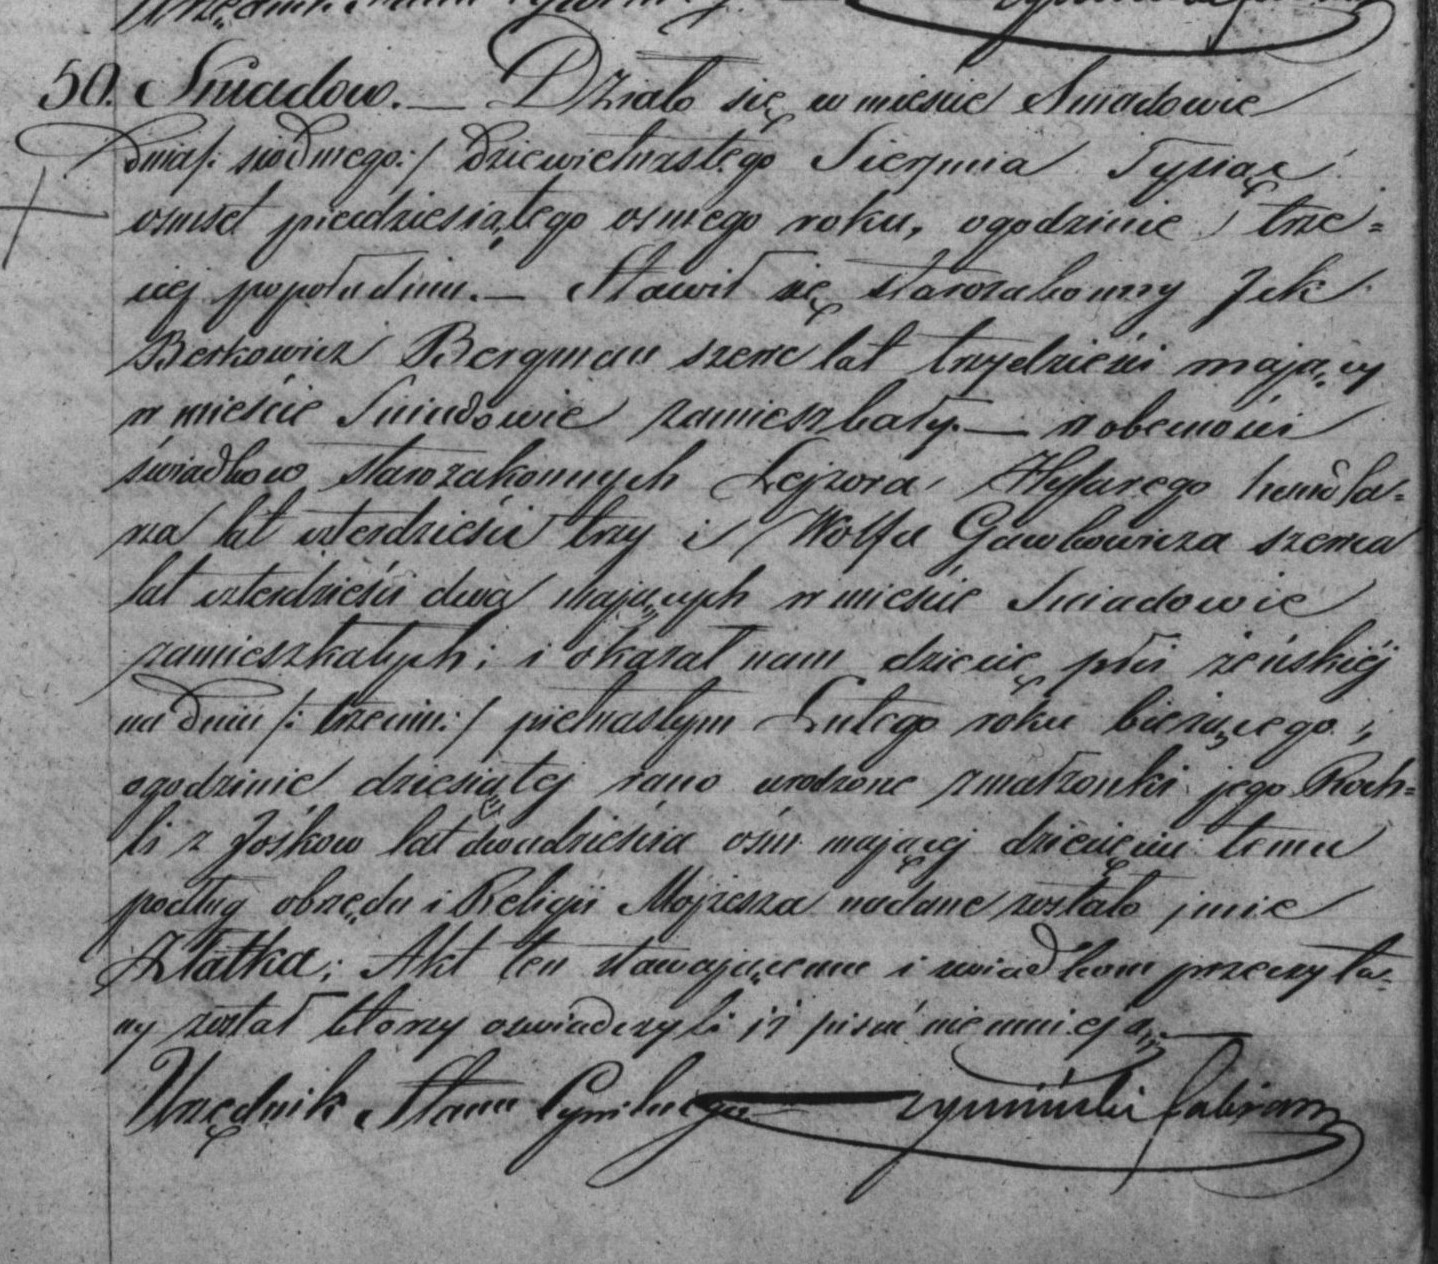 Urzędnik Stanu Cywilnego
50. Sniadow. — Działo się w mieście Sniadowie
dnia /: siodmego :/ dziewietnastego Sierpnia Tysiąc
osmset piędziesiątego osmego roku, ogodzinie trze=
ciej popołudniu. — Stawił się starozakonny Jck
Berkowicz Bergman szewc lat trzydzieści mający
w mieście Sniadowie zamieszkały. — w obecności
świadkow starozakonnych Lejzora handla=
rza lat czterdzieści trzy i Wolfa Gawkowicza szewca
lat czterdzieści dwa mających w mieście Sniadowie
zamieszkałych; i okazał nam dziecię płci żeńskiéj
na dniu /: trzecim :/ piętnastym Lutego roku bieżącego;
ogodzinie dziesiątej rano urodzone z małżonki jego Roch=
li z Jośkow lat dwadzieścia ośm mającej dziecięciu temu
podług obrzędu i Religii Mojżesza nadane zostało imie
Złatka; Akt ten stawającemu i swiadkom przeczyta=
ny został ktorzy oswiadczyli iż pisać nieumieją. —
Urzędnik Stanu Cywilnego